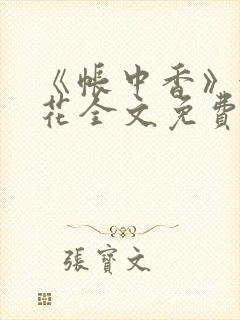 《帳中香》
花全文免費
張寶文